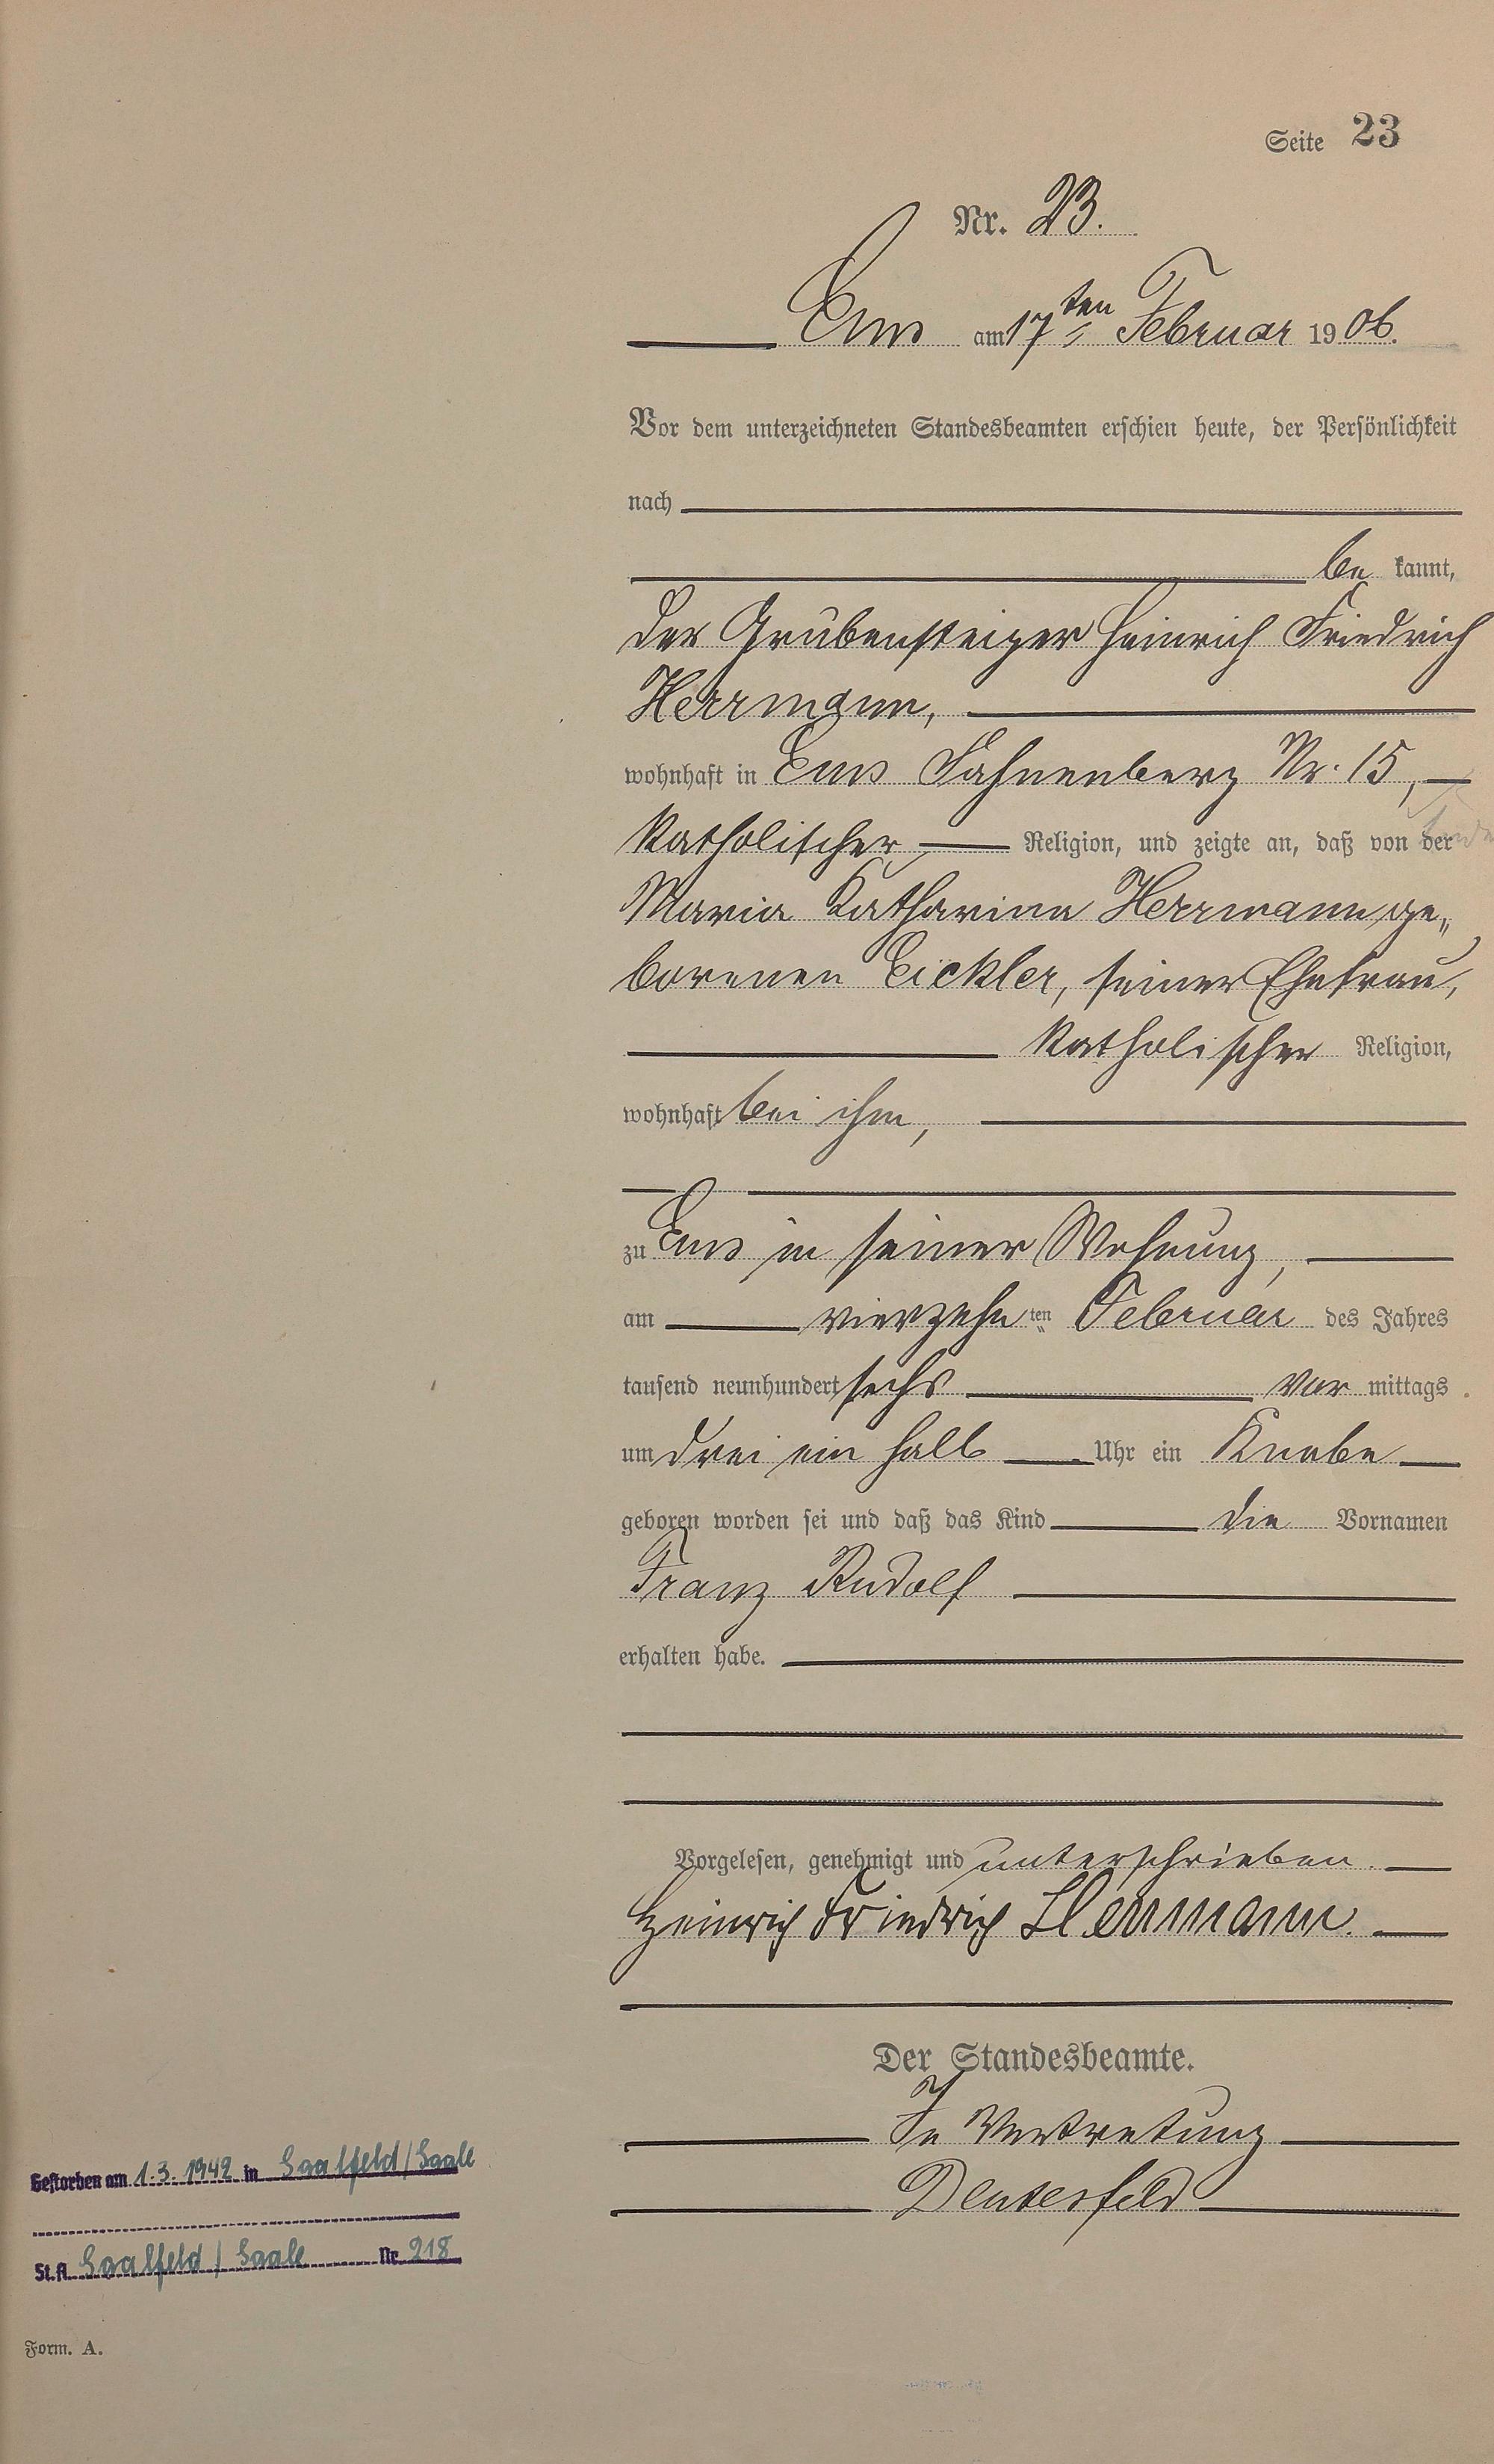 Seite 23
Nr. 23.
Ems am 17ten Februar 1906.
Vor dem unterzeichneten Standesbeamten erschien heute, der Persönlichkeit
nach
be kannt,
der Grubensteiger Heinrich Friedrich
Herrmann,
wohnhaft in Ems Fahnenberg Nr. 15,
katholischer Religion, und zeigte an, daß von der
Maria Katharina Herrmann ge„
borenen Eickler, seiner Ehefrau,
katholischer Religion,
wohnhaft bei ihm,
zu Ems in seiner Wohnung,
am vierzehn ten Februar des Jahres
tausend neunhundert sechs vor mittags
um drei ein halb Uhr ein Knabe
geboren worden sei und daß das Kind die Vornamen
Franz Rudolf
erhalten habe.
Vorgelesen, genehmigt und unterschrieben.
Heinrich Friedrich Herrmann.
Der Standesbeamte.
In Vertretung
Deusterfeld
Gestorben am 1.3.1942 in Saalfeld/Saale
St.A. Saalfeld / Saale Nr. 218
Form. A.